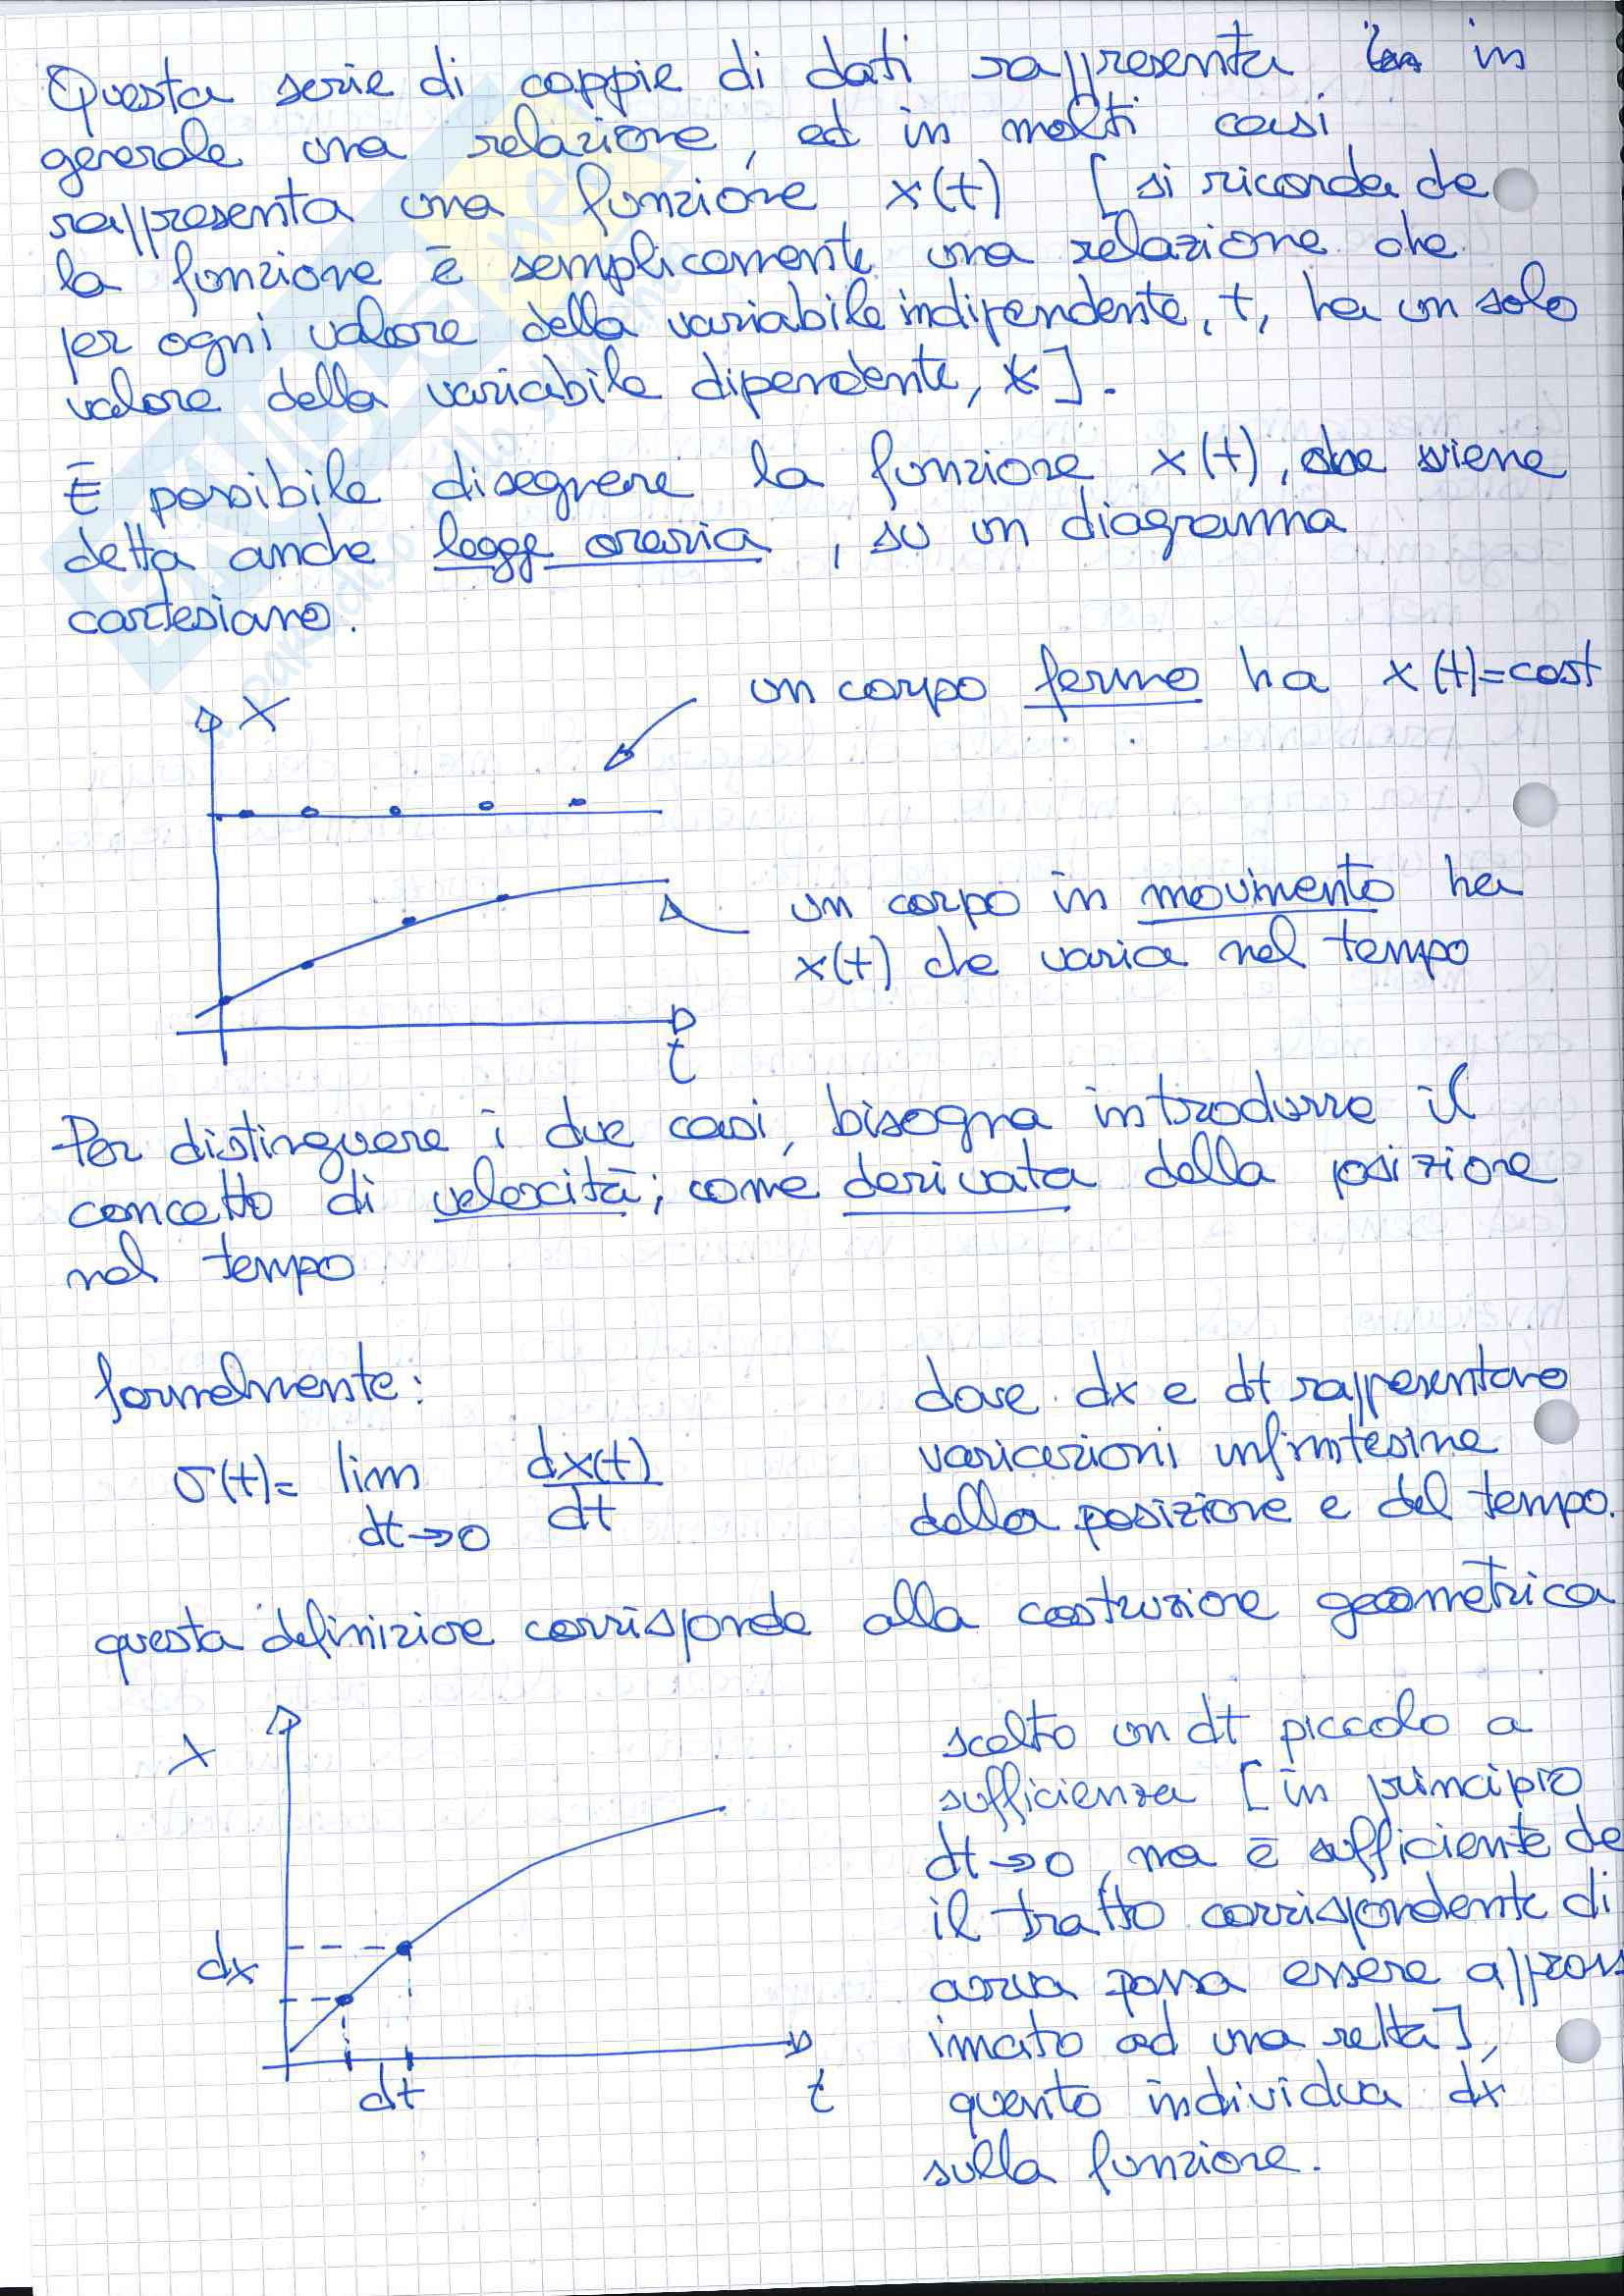 Questa serie di coppie di dati rappresenta in
generale una relazione, ed in molti casi
rappresenta una funzione x(t) [si ricorda che
la funzione è semplicemente una relazione che
per ogni valore della variabile indipendente, t, ha un solo
valore della variabile dipendente, x].
È possibile disegnare la funzione x(t), che viene
detta anche legge oraria, su un diagramma
cartesiano.
un corpo fermo ha x(t)=cost
X
un corpo in movimento ha
x(t) che varia nel tempo
t
Per distinguere i due casi, bisogna introdurre il
concetto di velocità; come derivata della posizione
nel tempo
formalmente:
v(t)= lim dx(t)/dt
dt→0
dove dx e dt rappresentano
variazioni infinitesime
della posizione e del tempo.
questa definizione corrisponde alla costruzione geometrica
x
dx
dt
t
scelto un dt piccolo a
sufficienza [in principio
dt→0, ma è sufficiente che
il tratto corrispondente di
curva possa essere appross
imato ad una retta],
questo individua dx
sulla funzione.